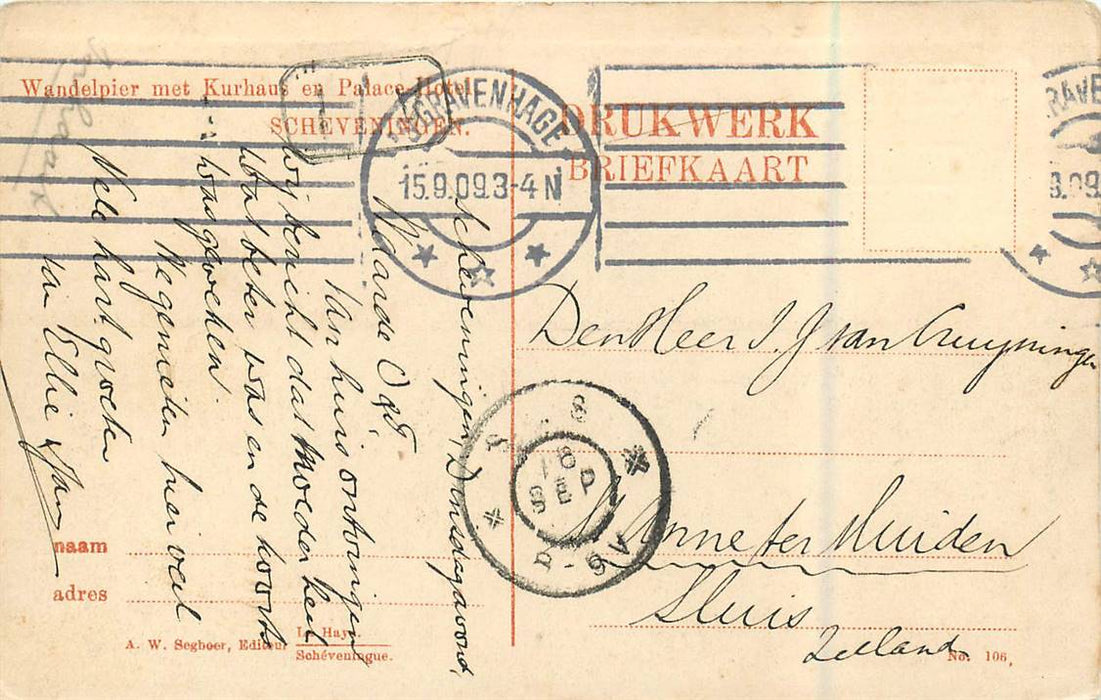 Wandelpier met Kurhaus en Palace-Hotel
SCHEVENINGEN.
DRUKWERK
BRIEFKAART
'S GRAVENHAGE
15.9.09.3-4 N
Scheveningen, Dinsdagavond,
Waarde
Van huis ontvingen
wij bericht dat Moeder heel
wat beter was en de koorts
was geweken.
We genieten hier veel
Vele hart. groeten
van Ellie & Jan
Den Heer I. J van Cruyningen
St Anne ter Muiden
Sluis
Zeeland
16
SEP
8-9V
naam
adres
A. W. Segboer, Editeur
La Haye
Schéveningue.
No. 106,